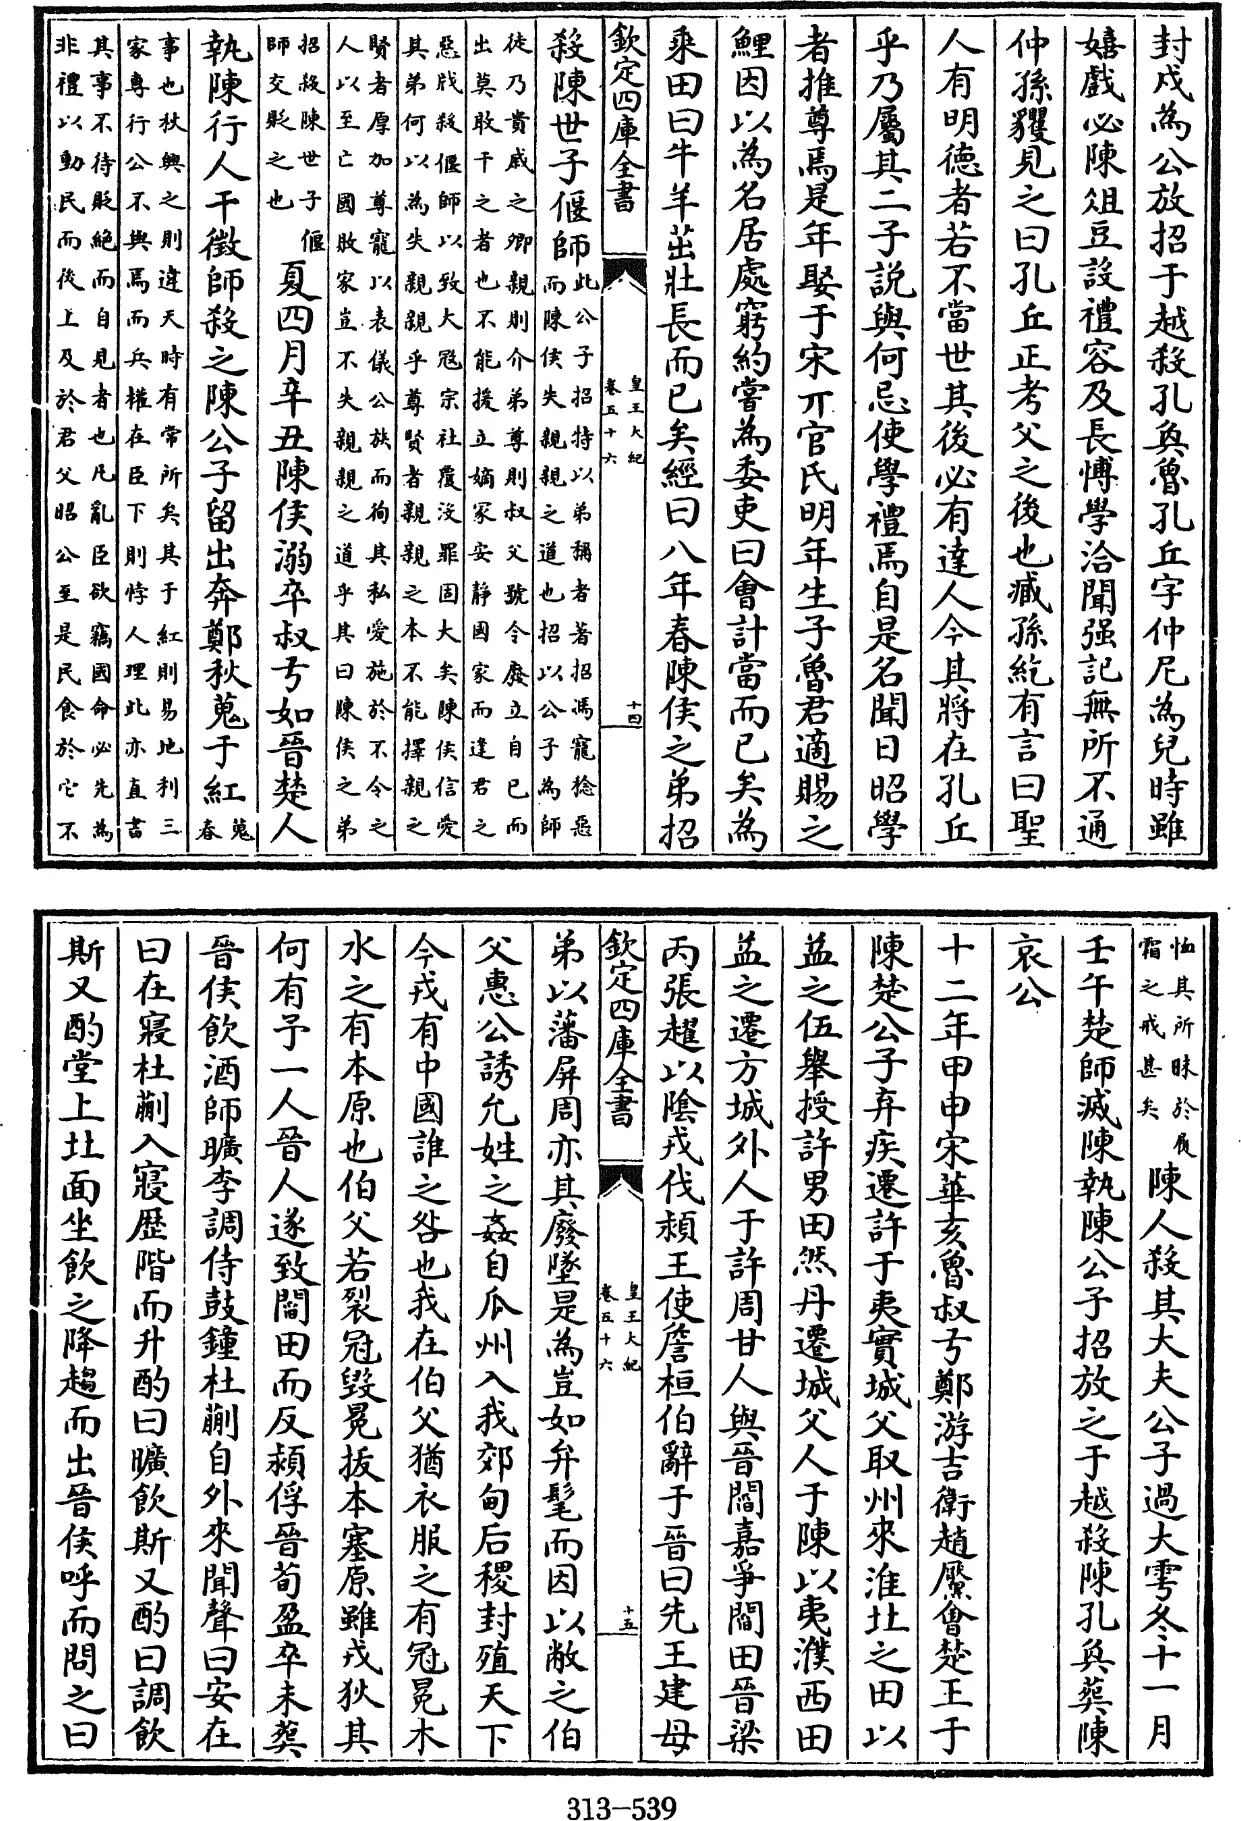 封戍為公放招于越殺孔奐魯孔丘字仲尼為兒時雖
嬉戲必陳俎豆設禮容及長博學洽聞强記無所不通
仲孫貜見之曰孔丘正考父之後也臧孫紇有言曰聖
人有明德者若不當世其後必有達人今其將在孔丘
乎乃屬其二子説與何忌使學禮焉自是名聞日昭學
者推尊焉是年娶于宋丌官氏明年生子魯君適賜之
鯉因以為名居處窮約嘗為委吏曰會計當而已矣為
乘田曰牛羊茁壯長而已矣經曰八年春陳侯之弟招
欽定四庫全書
皇王大紀
卷五十六
十四
殺陳世子偃師
此公子招特以弟稱者著招馮寵稔惡
而陳侯失親親之道也招以公子為師
徒乃貴戚之卿親則介弟尊則叔父號令廢立自已而
出莫敢干之者也不能援立嫡冢安靜國家而逢君之
惡戕殺偃師以致大冦宗社覆沒罪固大矣陳侯信愛
其弟何以為失親親乎尊賢者親親之本不能擇親之
賢者厚加尊寵以表儀公族而徇其私愛施於不令之
人以至亡國敗家豈不失親親之道乎其曰陳侯之弟
招殺陳世子偃
師交貶之也
夏四月辛丑陳侯溺卒叔弓如晉楚人
執陳行人干徵師殺之陳公子留出奔鄭秋蒐于紅
蒐
春
事也秋興之則違天時有常所矣其于紅則易地利三
家專行公不與焉而兵權在臣下則悖人理此亦直書
其事不待貶絶而自見者也凡亂臣欲竊國命必先為
非禮以動民而後上及於君父昭公至是民食於它不
恤其所昧於履
霜之戒甚矣
陳人殺其大夫公子過大雩冬十一月
壬午楚師滅陳執陳公子招放之于越殺陳孔奐葬陳
哀公
十二年甲申宋華亥魯叔弓鄭游吉衛趙黶會楚王于
陳楚公子弃疾遷許于夷實城父取州來淮北之田以
益之伍舉授許男田然丹遷城父人于陳以夷濮西田
益之遷方城外人于許周甘人與晉閻嘉爭閻田晉梁
丙張趯以陰戎伐潁王使詹桓伯辭于晉曰先王建母
欽定四庫全書
皇王大紀
卷五十六
十五
弟以藩屏周亦其廢墜是為豈如弁髦而因以敝之伯
父惠公誘允姓之姦自瓜州入我郊甸后稷封殖天下
今戎有中國誰之咎也我在伯父猶衣服之有冠冕木
水之有本原也伯父若裂冠毀冕拔本塞原雖戎狄其
何有予一人晉人遂致閻田而反潁俘晉荀盈卒未葬
晉侯飲酒師曠李調侍鼓鐘杜蒯自外來聞聲曰安在
曰在寢杜蒯入寢歴階而升酌曰曠飲斯又酌曰調飲
斯又酌堂上北面坐飲之降趨而出晉侯呼而問之曰
313-539